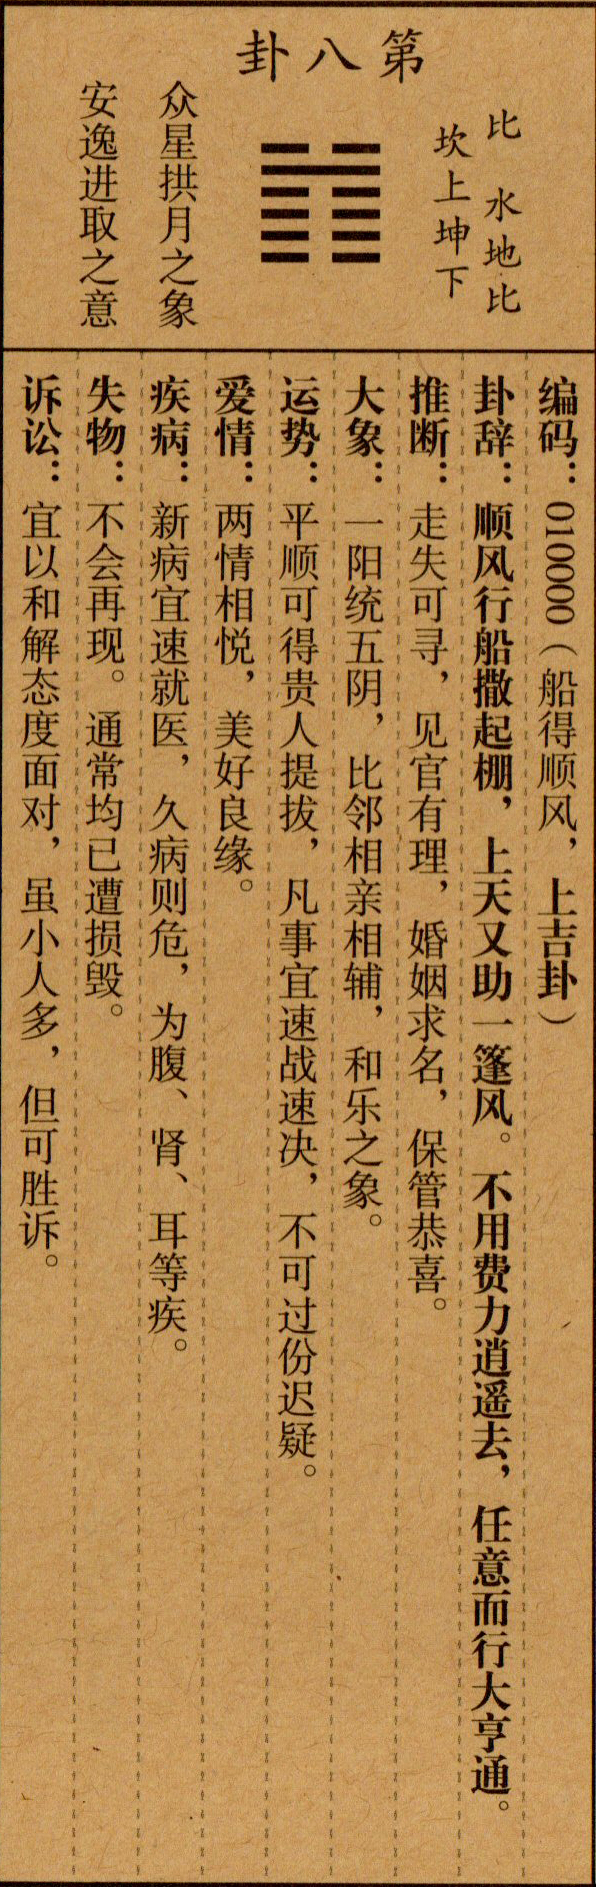 第八卦
比 水地比
坎上坤下
众星拱月之象
安逸进取之意
编码：010000（船得顺风，上吉卦）
卦辞：顺风行船撒起棚，上天又助一篷风。不用费力逍遥去，任意而行大亨通。
推断：走失可寻，见官有理，婚姻求名，保管恭喜。
大象：一阳统五阴，比邻相亲相辅，和乐之象。
运势：平顺可得贵人提拔，凡事宜速战速决，不可过份迟疑。
爱情：两情相悦，美好良缘。
疾病：新病宜速就医，久病则危，为腹、肾、耳等疾。
失物：不会再现。通常均已遭损毁。
诉讼：宜以和解态度面对，虽小人多，但可胜诉。